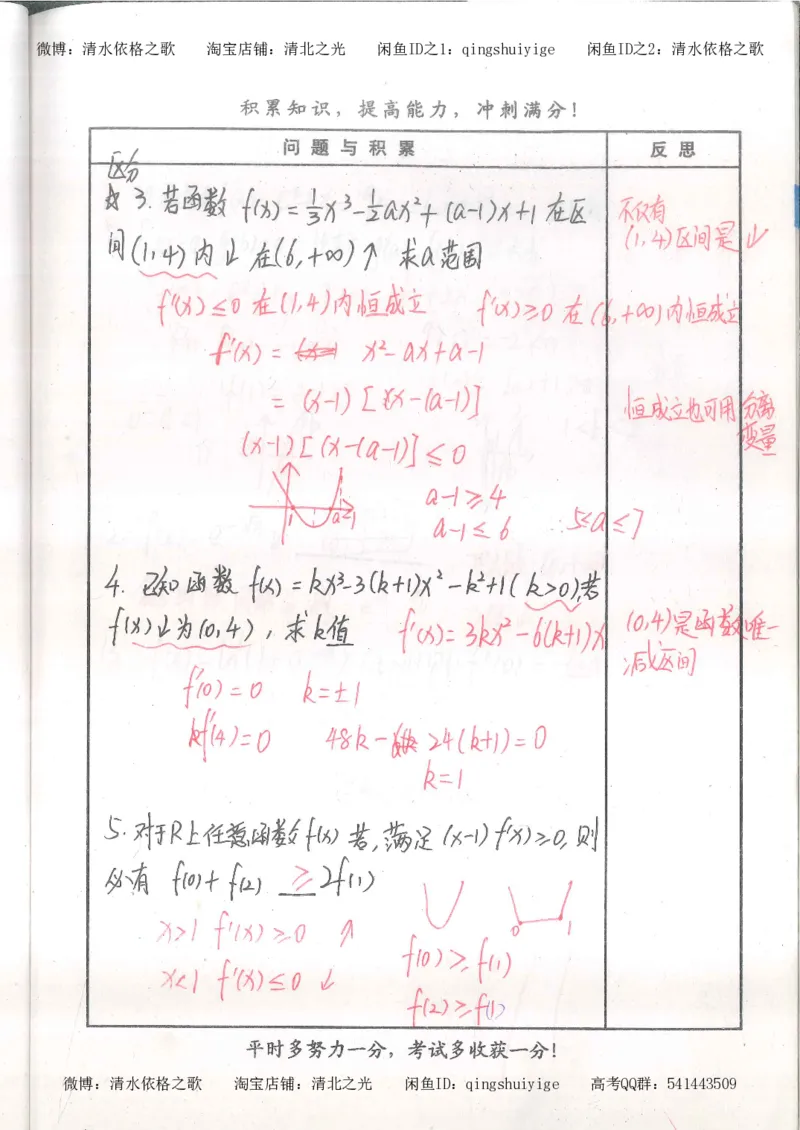 微博：清水依格之歌 淘宝店铺：清北之光 闲鱼ID之1：qingshuiyige 闲鱼ID之2：清水依格之歌
积累知识，提高能力，冲刺满分！
问题与积累 反思
区分
3. 若函数 f(x) = 1/3 x³ - 1/2 ax² + (a-1)x + 1 在区
间(1,4)内↓ 在(6,+∞)↑ 求a范围
不仅有
(1,4)区间是↓
f'(x) ≤ 0 在(1,4)内恒成立 f'(x) ≥ 0 在(6,+∞)内恒成立
f'(x) = x² - ax + a - 1
= (x-1)[(x-(a-1)]
恒成立也可用分离
变量
(x-1)[(x-(a-1)] ≤ 0
1 a-1
a-1 ≥ 4
a-1 ≤ 6 ∴ 5 ≤ a ≤ 7
4. 已知函数 f(x) = kx³ - 3(k+1)x² - k² + 1 (k>0), 若
f(x)↓为(0,4)，求k值 f'(x) = 3kx² - 6(k+1)x
(0,4)是函数唯一
减区间
f'(0) = 0 k = ±1
f'(4) = 0 48k - 24(k+1) = 0
k = 1
5. 对于R上任意函数f(x) 若，满足 (x-1)f'(x) ≥ 0, 则
必有 f(0) + f(2) ≥ 2f(1)
x>1 f'(x) ≥ 0 ↑
0 1
x<1 f'(x) ≤ 0 ↓
f(0) ≥ f(1)
f(2) ≥ f(1)
平时多努力一分，考试多收获一分！
微博：清水依格之歌 淘宝店铺：清北之光 闲鱼ID：qingshuiyige 高考QQ群：541443509